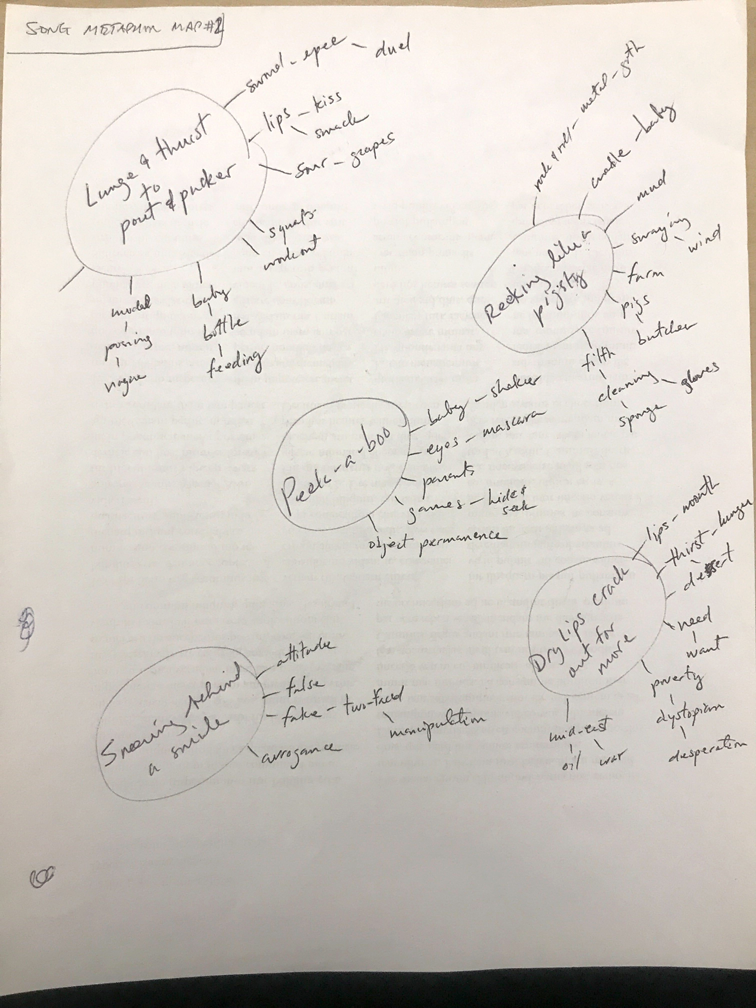 SONG METAPHOR MAP #2
Lunge & thrust
to
pout & pucker
sword - epee - duel
lips - kiss
smack
sour - grapes
squats
workout
baby
bottle
feeding
model
posing
vogue
Reeking like a
pigsty
rock & roll - metal - goth
cradle - baby
mud
swaying
wind
farm
pigs
butcher
filth
cleaning - gloves
sponge
Peek-a-boo
baby - shaker
eyes - mascara
parents
games - hide &
seek
object permanence
Sneering behind
a smile
attitude
false
fake - two-faced
manipulation
arrogance
Dry lips crack
out for
more
lips - mouth
thirst - hunger
desert
need
want
poverty
dystopian
desperation
mid-east
oil
war